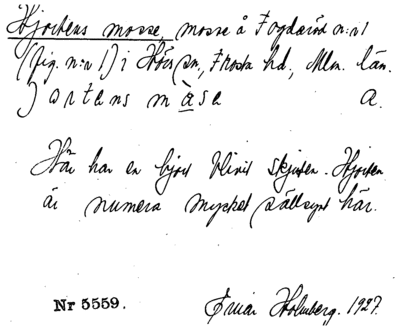 Hjortens mosse, mosse å Fogdaröd n:r 1
(fig. n:r 1) i Hörs sn., Frosta hd., Mlm. län.
Jortens màse a.
Här har en hjort blivit skjuten. Hjorten
är numera mycket sällsynt här.
Nr 5559. Einar Holmberg. 1927.